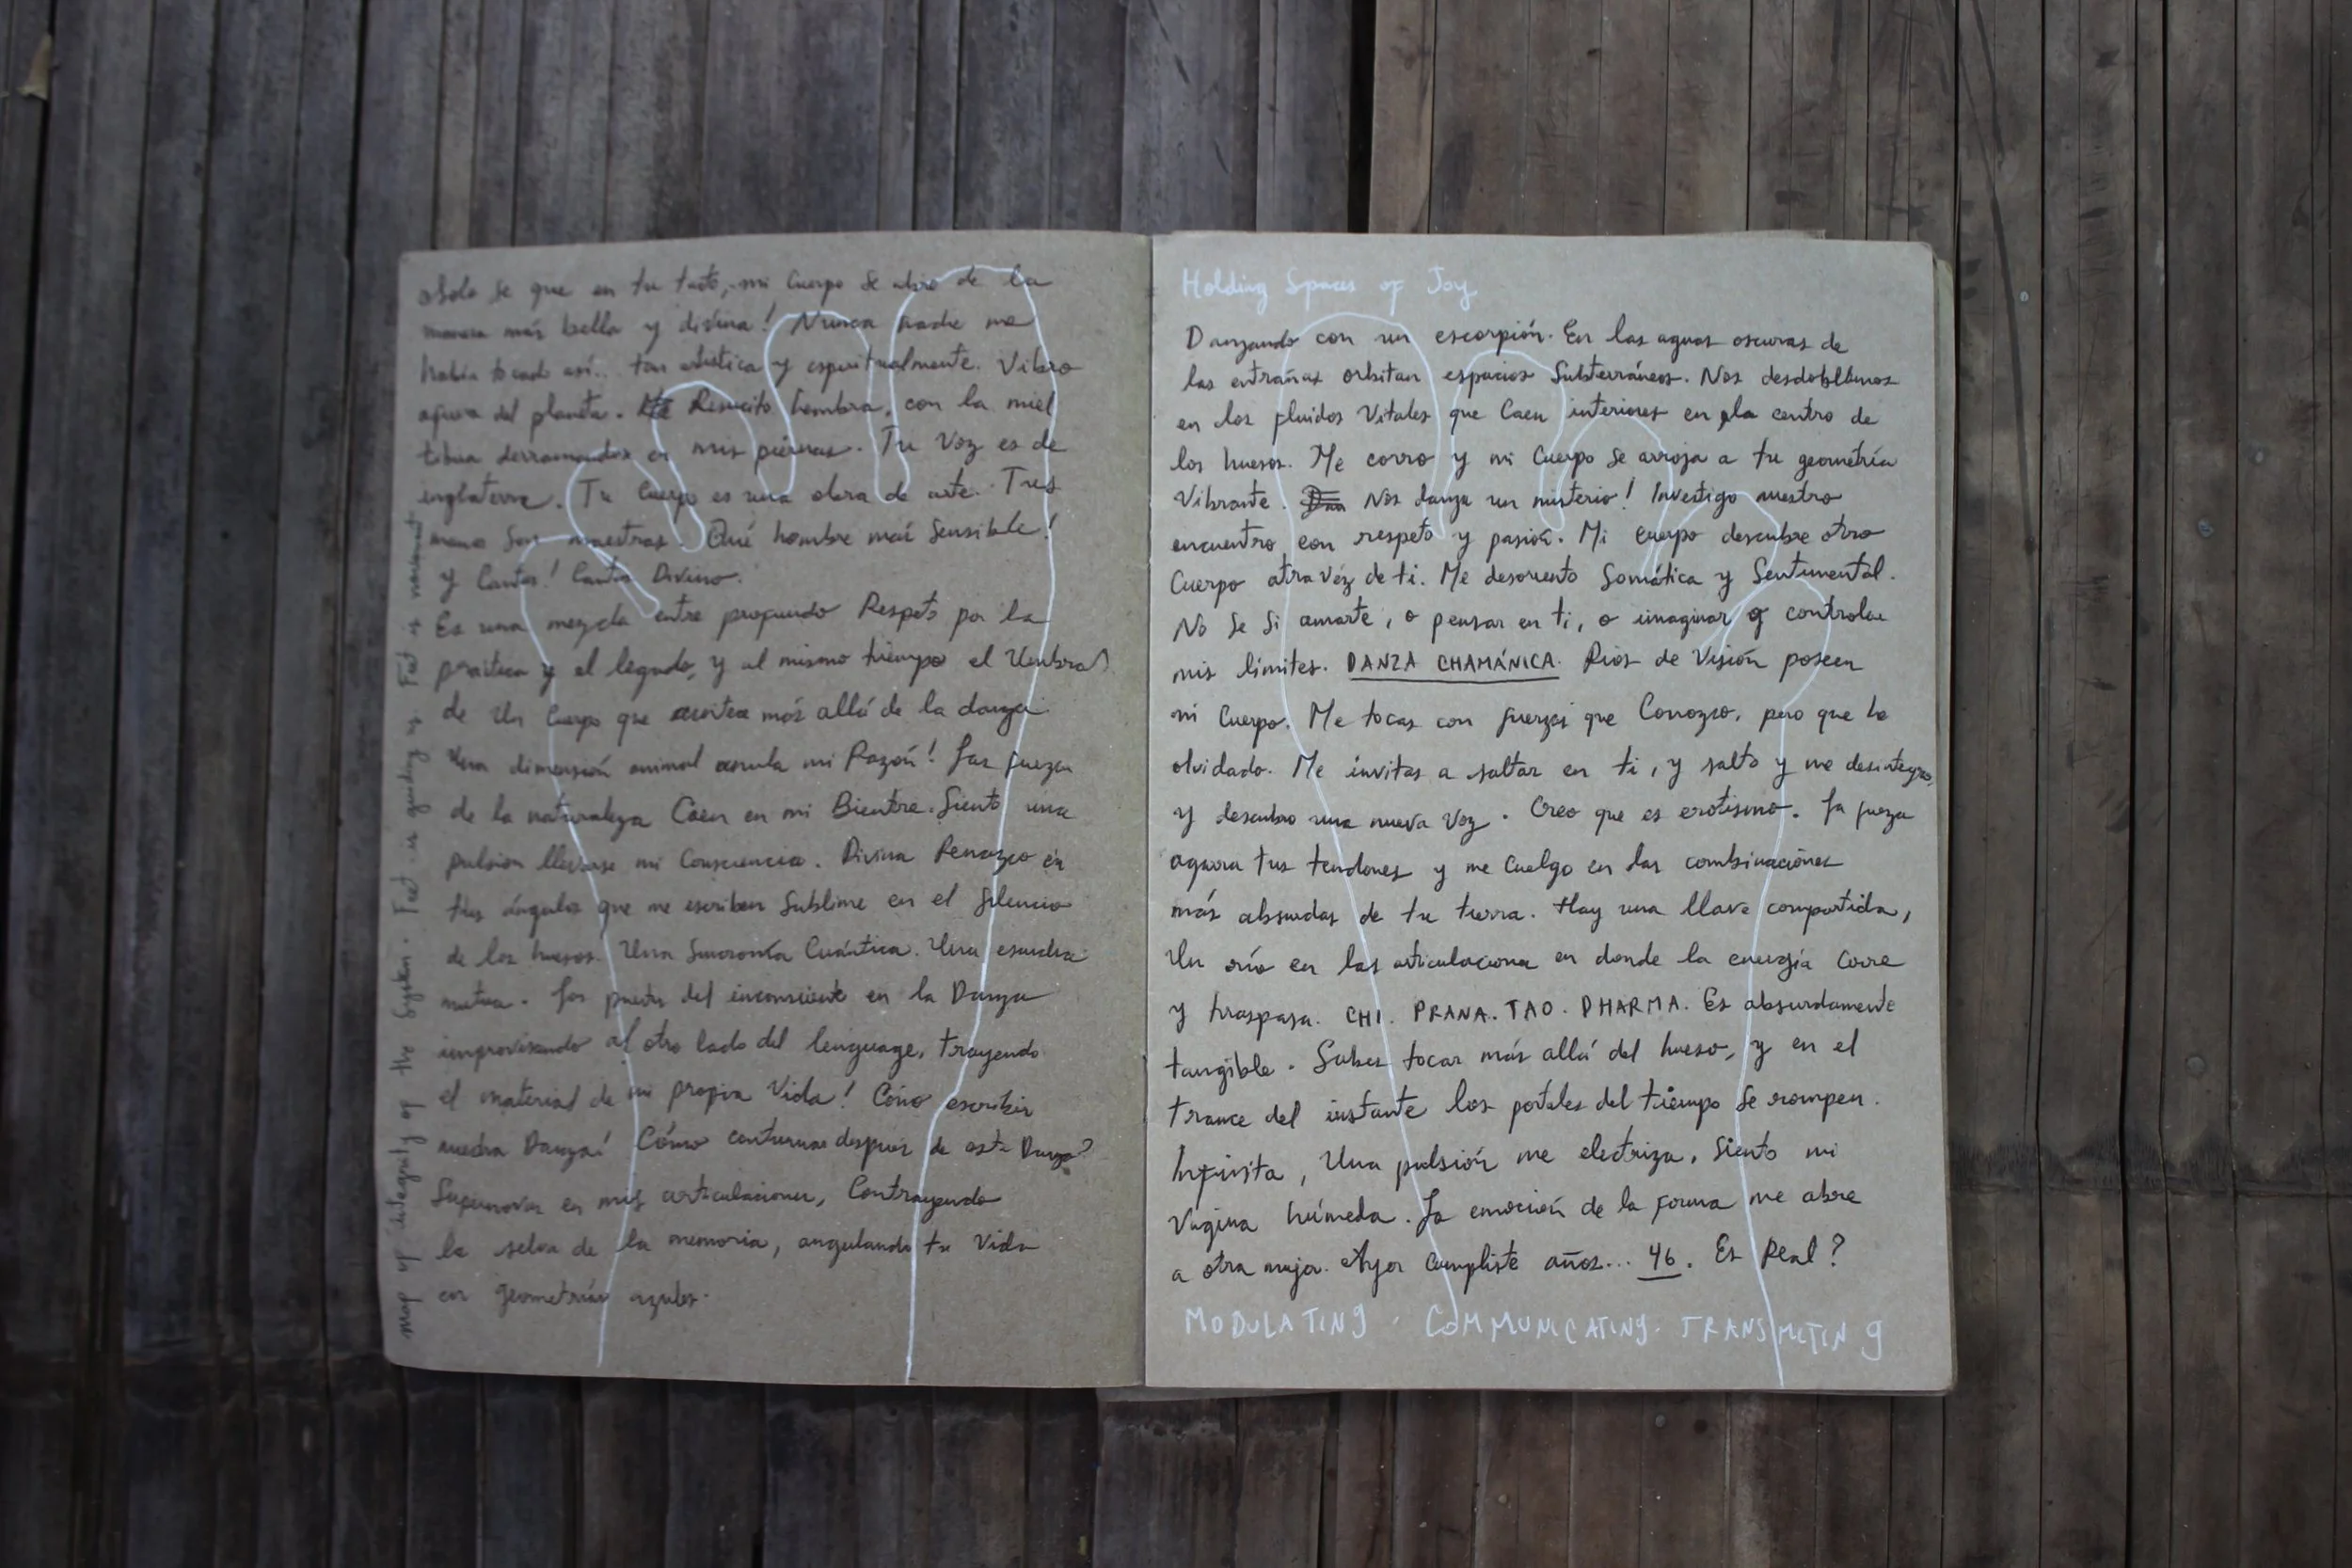 Solo se que en tu tacto, mi Cuerpo se abre de la
manera más bella y divina! Nunca nadie me
había tocado así.. tan artística y espiritualmente. Vibro
afuera del planeta. Resucito hembra, con la miel
tibia derramandose en mis piernas. Tu Voz es de
inglaterra. Tu Cuerpo es una obra de arte. Tus
manos son maestras. Qué hombre más Sensible!
y Cantas! Cantas Divino.
Es una mezcla entre profundo Respeto por la
práctica y el legado, y al mismo tiempo el Umbral
de Un Cuerpo que más allá de la danza.
Una dimensión animal anula mi Razón! Las fuerzas
de la naturaleza Caen en mi Bientre. Siento una
pulsion llevarse mi Consciencia. Divina Renazco en
tus ángulos que me escriben Sublime en el Silencio
de los huesos. Una Sincronía Cuántica. Una escucha
mutua. Los puentes del inconsciente en la Danza
improvisando al otro lado del lenguage, trayendo
el material de mi propia Vida! Cómo escribir
nuestra Danza! Cómo continuar después de esta Danza?
Supernovas en mis articulaciones, Contrayendo
la selva de la memoria, angulando tu Vida
con geometrías azules.
map of integrity of the System. Feet is guiding us. Feet is movement
Holding Spaces of Joy
Danzando con un escorpión. En las aguas oscuras de
las entrañas orbitan espacios Subterráneos. Nos desdobllamos
en los fluidos Vitales que Caen interiores en la centro de
los huesos. Me corro y mi Cuerpo se arroja a tu geometría
Vibrante. Nos danza un misterio! Investigo nuestro
encuentro con respeto y pasión. Mi cuerpo descubre otro
Cuerpo atravéz de ti. Me desoriento Somática y Sentimental.
No Se Si amarte, o pensar en ti, o imaginar o controlar
mis límites. DANZA CHAMÁNICA. Ríos de Visión poseen
mi Cuerpo. Me tocas con fuerzas que Conozco, pero que he
olvidado. Me invitas a saltar en ti, y salto y me desintegro,
y descubro una nueva Voz. Creo que es erotismo. La fuerza
agarra tus tendones y me Cuelgo en las combinaciones
más absurdas de tu tierra. Hay una llave compartida,
Un río en las articulaciones en donde la energía Corre
y traspasa. CHI. PRANA. TAO. DHARMA. Es absurdamente
tangible. Sabes tocar más allá del hueso, y en el
trance del instante los portales del tiempo Se rompen.
Infinita, Una pulsión me electriza, Siento mi
Vagina húmeda. La emoción de la forma me abre
a otra mujer. Ayer Cumpliste años... 46. Es Real?
MODULATINg. COMMUNICATINg. TRANSMITINg